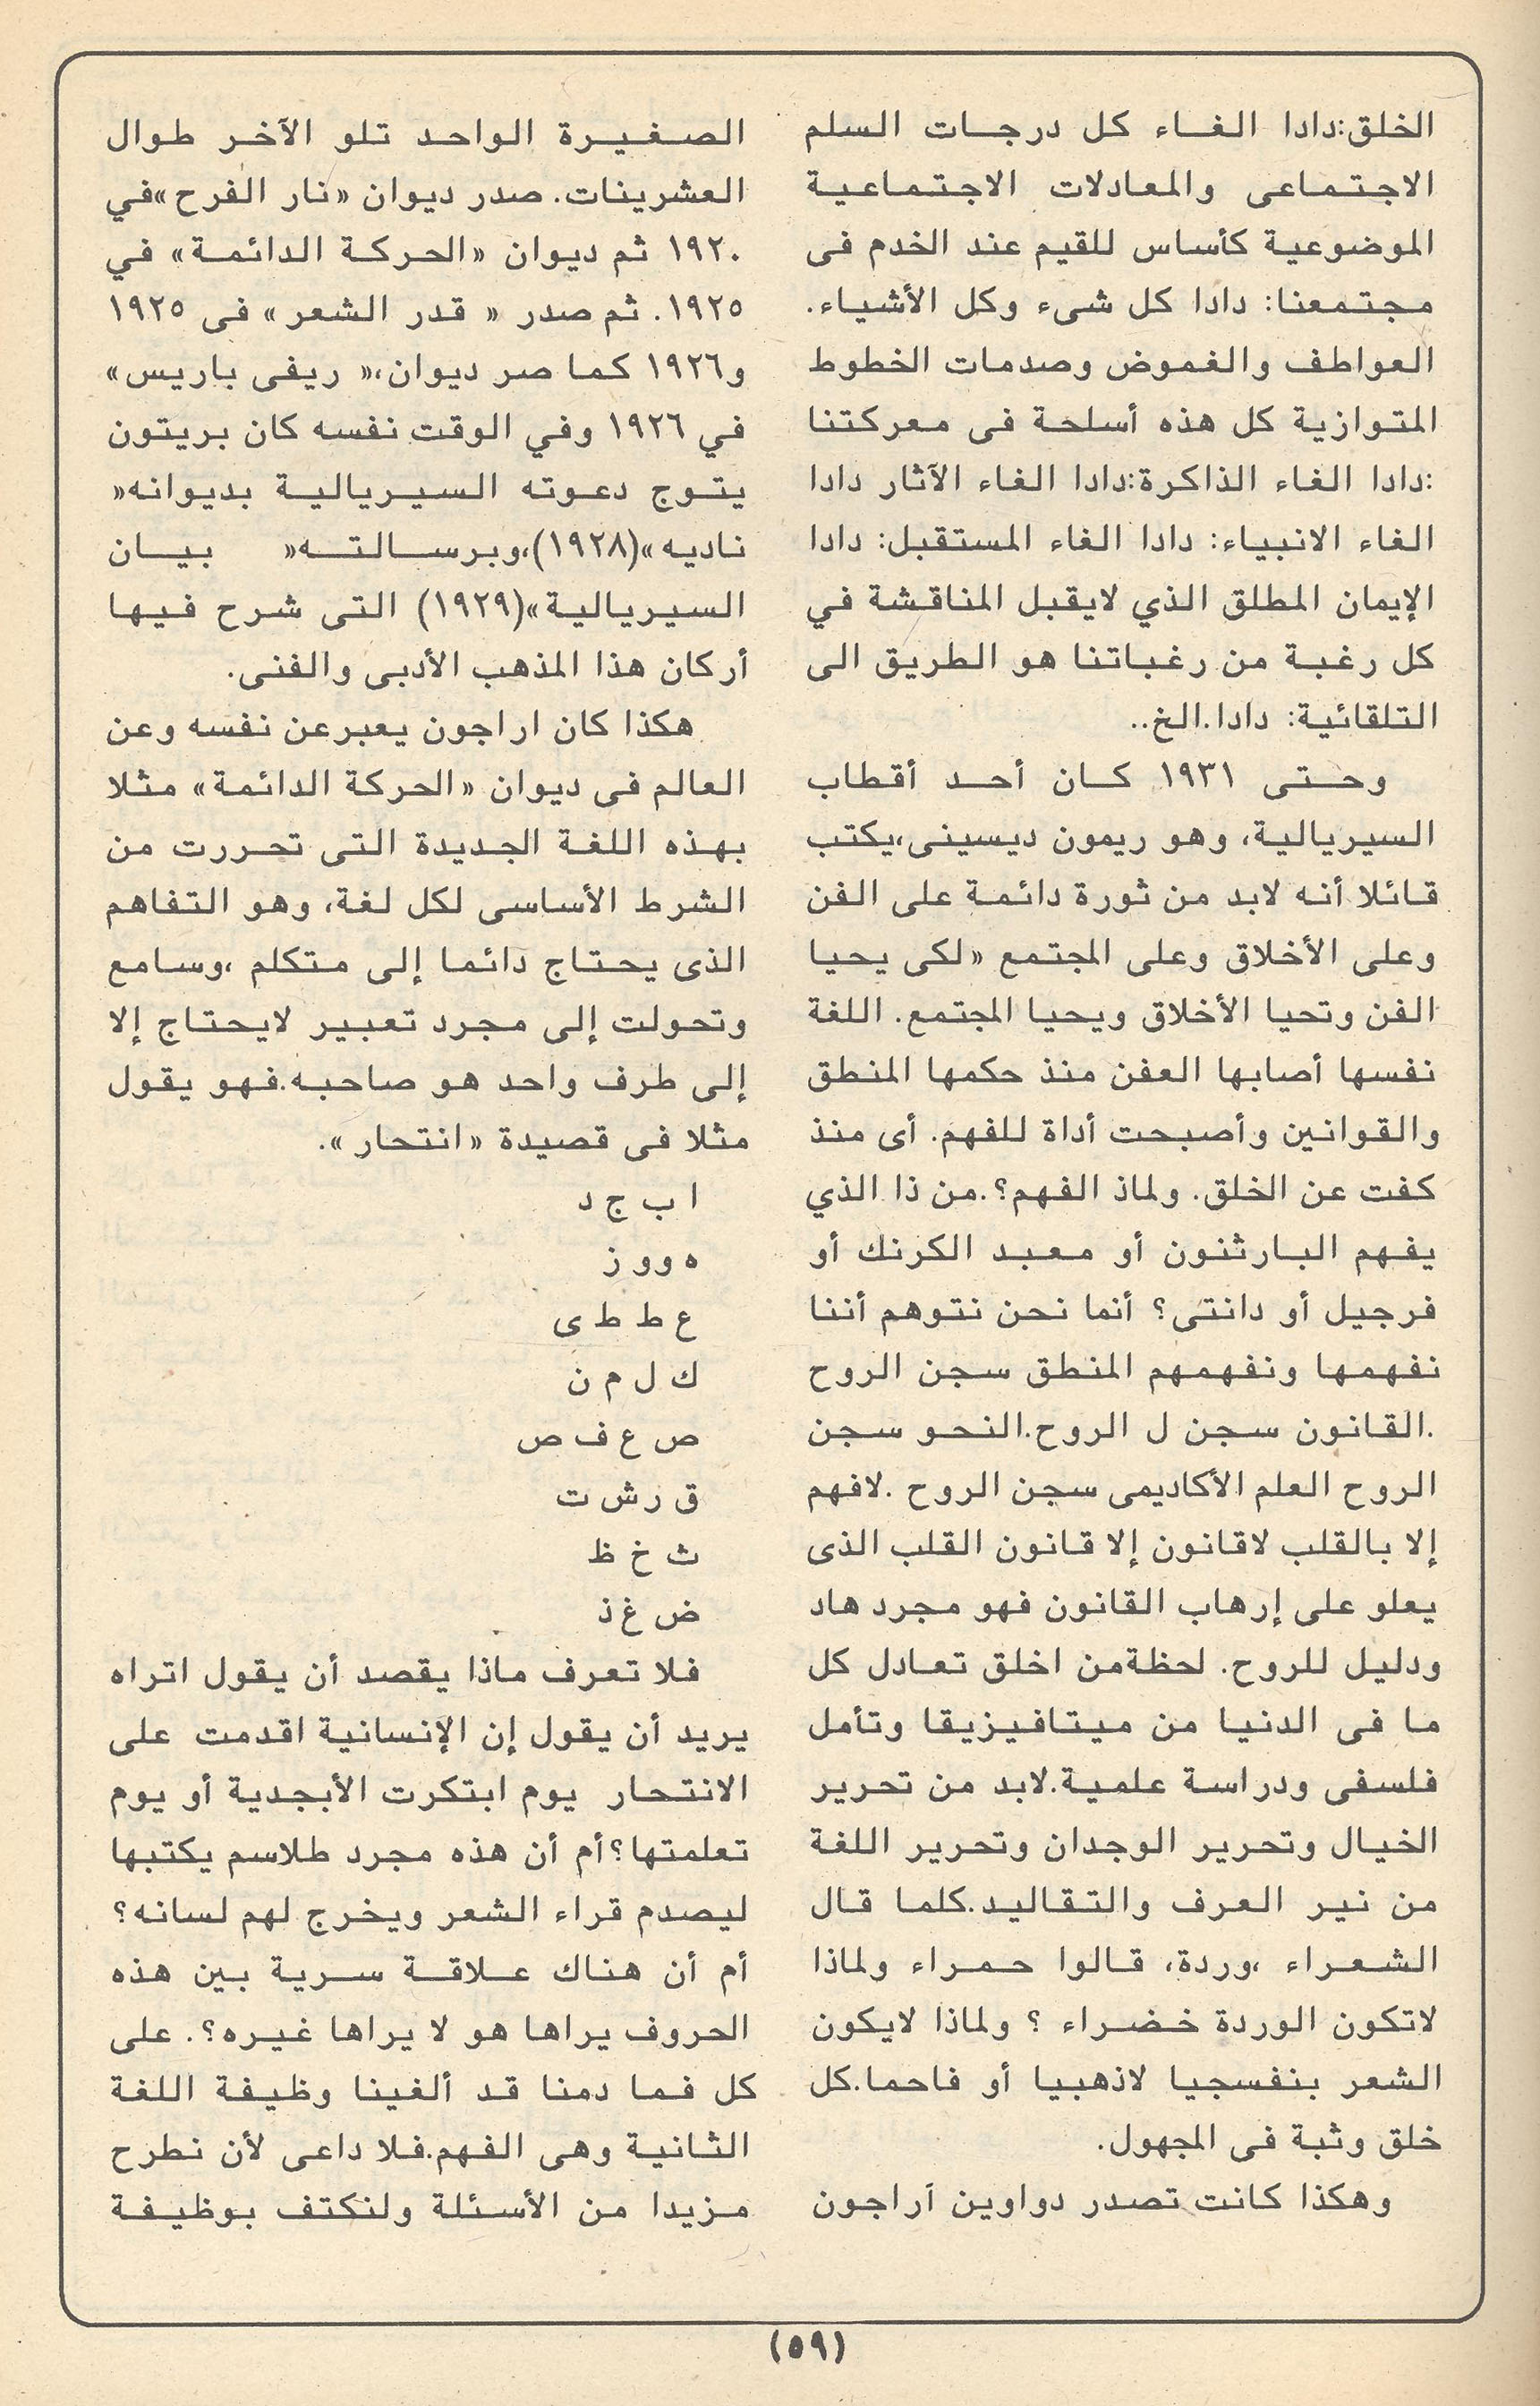 الخلق:دادا الغاء كل درجات السلم
الاجتماعى والمعادلات الاجتماعية
الموضوعية كأساس للقيم عند الخدم فى
مجتمعنا: دادا كل شىء وكل الأشياء.
العواطف والغموض وصدمات الخطوط
المتوازية كل هذه أسلحة فى معركتنا
:دادا الغاء الذاكرة:دادا الغاء الآثار دادا
الغاء الانبياء: دادا الغاء المستقبل: دادا
الإيمان المطلق الذي لايقبل المناقشة في
كل رغبة من رغباتنا هو الطريق الى
التلقائية: دادا.الخ..
وحتى ١٩٣١ كان أحد أقطاب
السيريالية، وهو ريمون ديسينى،يكتب
قائلا أنه لابد من ثورة دائمة على الفن
وعلى الأخلاق وعلى المجتمع «لكى يحيا
الفن وتحيا الأخلاق ويحيا المجتمع. اللغة
نفسها أصابها العفن منذ حكمها المنطق
والقوانين وأصبحت أداة للفهم. أى منذ
كفت عن الخلق. ولماذ الفهم؟.من ذا الذي
يفهم البارثنون أو معبد الكرنك أو
فرجيل أو دانتى؟ أنما نحن نتوهم أننا
نفهمها ونفهمهم المنطق سجن الروح
.القانون سجن ل الروح.النحو سجن
الروح العلم الأكاديمى سجن الروح .لافهم
إلا بالقلب لاقانون إلا قانون القلب الذى
يعلو على إرهاب القانون فهو مجرد هاد
ودليل للروح. لحظةمن اخلق تعادل كل
ما فى الدنيا من ميتافيزيقا وتأمل
فلسفى ودراسة علمية.لابد من تحرير
الخيال وتحرير الوجدان وتحرير اللغة
من نير العرف والتقاليد.كلما قال
الشعراء ،وردة، قالوا حمراء ولماذا
لاتكون الوردة خضراء ؟ ولماذا لايكون
الشعر بنفسجيا لاذهبيا أو فاحما.كل
خلق وثبة فى المجهول.
وهكذا كانت تصدر دواوين آراجون
الصغيرة الواحد تلو الآخر طوال
العشرينات. صدر ديوان «نار الفرح»في
١٩٢٠ ثم ديوان «الحركة الدائمة» في
١٩٢٥. ثم صدر « قدر الشعر» فى ١٩٢٥
و١٩٢٦ كما صر ديوان،« ريفى باريس»
في ١٩٢٦ وفي الوقت نفسه كان بريتون
يتوج دعوته السيريالية بديوانه«
ناديه»(١٩٢٨)،وبرسالته« بيان
السيريالية»(١٩٢٩) التى شرح فيها
أركان هذا المذهب الأدبى والفنى.
هكذا كان اراجون يعبرعن نفسه وعن
العالم فى ديوان «الحركة الدائمة» مثلا
بهذه اللغة الجديدة التى تحررت من
الشرط الأساسى لكل لغة، وهو التفاهم
الذى يحتاج دائما إلى متكلم ،وسامع
وتحولت إلى مجرد تعبير لايحتاج إلا
إلى طرف واحد هو صاحبه.فهو يقول
مثلا فى قصيدة «انتحار».
ا ب ج د
ه وو ز
ع ط ط ى
ك ل م ن
ص ع ف ص
ق ر ش ت
ث خ ظ
ض غ ذ
فلا تعرف ماذا يقصد أن يقول اتراه
يريد أن يقول إن الإنسانية اقدمت على
الانتحار يوم ابتكرت الأبجدية أو يوم
تعلمتها؟أم أن هذه مجرد طلاسم يكتبها
ليصدم قراء الشعر ويخرج لهم لسانه؟
أم أن هناك علاقة سرية بين هذه
الحروف يراها هو لا يراها غيره؟. على
كل فما دمنا قد ألغينا وظيفة اللغة
الثانية وهى الفهم.فلا داعى لأن نطرح
مزيدا من الأسئلة ولنكتف بوظيفة
(٥٩)